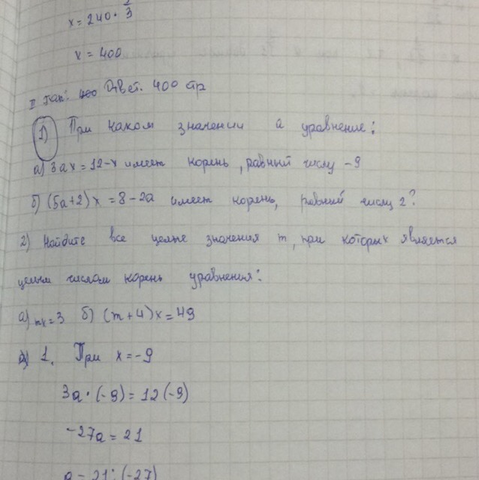 x=240·5/3
x=400
II так: Ответ. 400 стр
1) При каком значении а уравнение:
а) 3ах=12-х имеет корень, равный числу -9
б) (5а+2)х=8-2а имеет корень, равный числу 2?
2) Найдите все целые значения m, при которых является
целым числом корень уравнения:
а) mx=3 б) (m+4)x=49
1. При x=-9
3а·(-9)=12(-9)
-27а=21
а=21:(-27)